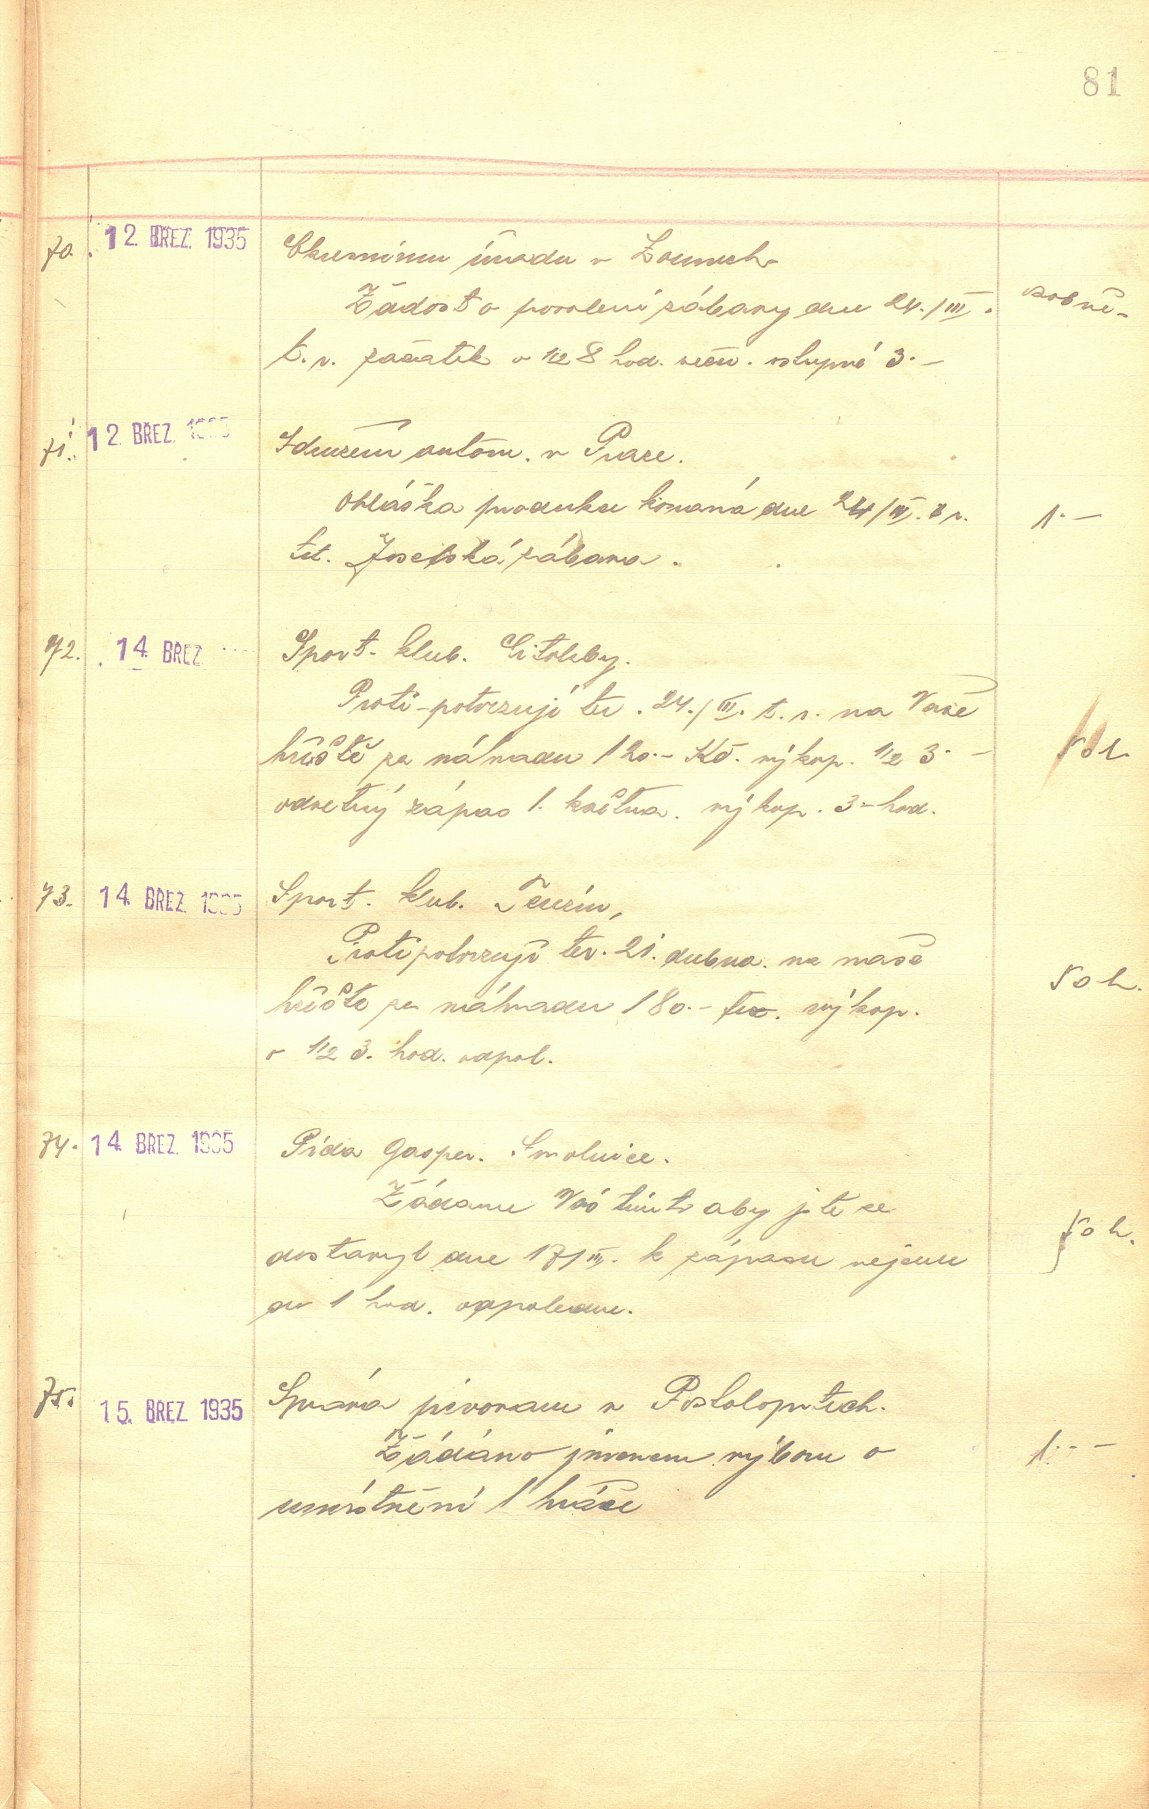 81
70. 12. BŘEZ. 1935 Okresnímu úřadu v Lounech
Žádost o povolení zábavy dne 24./III. osobně-
t. r. začátek v 1/2 8 hod. več. vstupné 3.-
71. 12. BŘEZ. 1935 Sdružení autorů. v Praze.
Ohláška produkce konaná dne 24/III. t r. 1.-
tit. Josefská zábava.
72. 14. BŘEZ. Sport. klub. Citoliby.
Proti-potvrzují ter. 24./III. t. r. na Vaše
hřiště za náhradu 120.- Kč. výkop. 1/2 3.- 50 h.
odvetný zápas 1. května. výkop. 3.- hod.
73. 14. BŘEZ. 1935 Sport. klub. Terezín,
Protipotvrzují ter. 21. dubna. na naše
hřiště za náhradu 180.- výkop. 50 h.
v 1/2 3. hod. odpol.
74. 14. BŘEZ. 1935 Pída Gasper. Smolnice.
Žádáme Vás tímto aby jste se
dostavyl dne 17/III. k zápasu nejdéle 50 h.
do 1 hod. odpoledne.
75. 15. BŘEZ. 1935 Správa pivovaru v Postoloprtech.
Žádáno jménem výboru o 1.--
umístnění 1 hráče